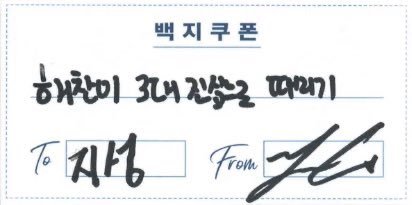 백지쿠폰
해찬이 3대 진심으로 때리기
To 지성 From